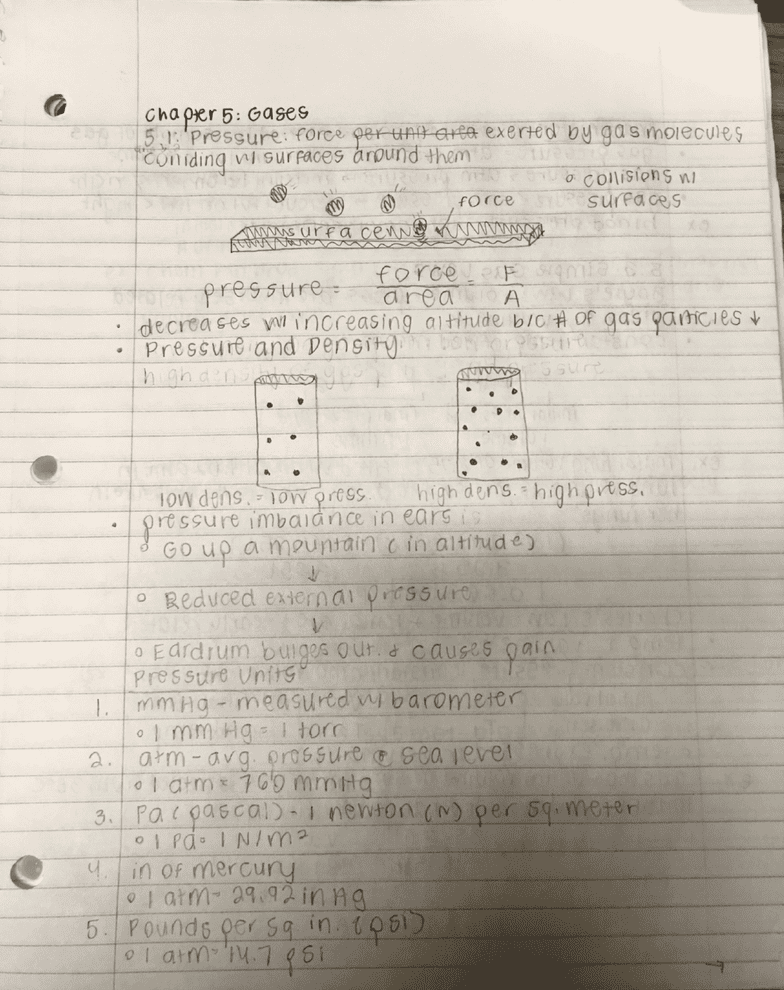 Chapter 5: Gases
5.1: Pressure: force per unit area exerted by gas molecules
colliding w/ surfaces around them
° collisions w/
surfaces
force
surface
pressure = force/area = F/A
• decreases w/ increasing altitude b/c # of gas particles ↓
• Pressure and Density
low dens. = low press.
high dens. = high press.
• pressure imbalance in ears
° Go up a mountain (in altitude)
↓
° Reduced external pressure
↓
° Eardrum bulges out & causes pain
Pressure Units
1. mmHg - measured w/ barometer
° 1 mm Hg = 1 torr
2. atm - avg. pressure @ sea level
° 1 atm = 760 mmHg
3. Pa (pascal) - 1 newton (N) per sq. meter
° 1 Pa = 1 N/m²
4. in of mercury
° 1 atm = 29.92 in Hg
5. Pounds per sq in. (psi)
° 1 atm = 14.7 psi
→